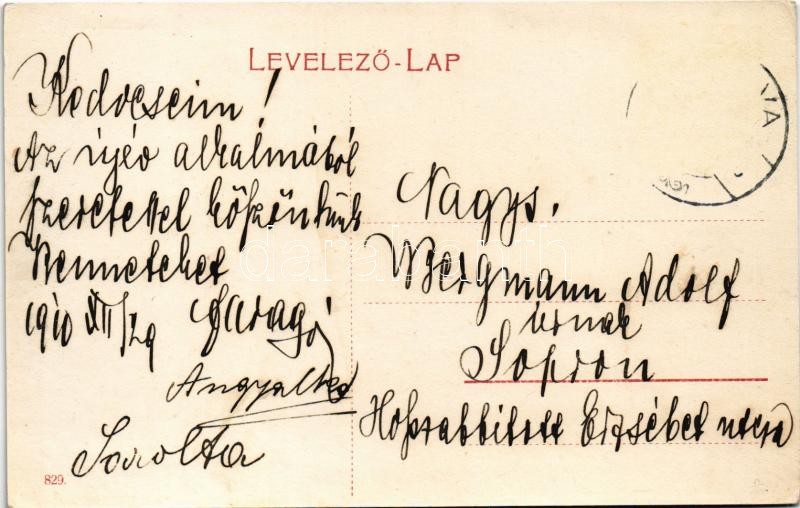 LEVELEZŐ-LAP
Kedveseim!
Az újév alkalmából
szeretettel köszöntünk
Benneteket
1910 XII/29 Faragó
Sarolta
Nagys.
Bergmann Adolf
úrnak
Sopron
Hoszabbitott Erzsébet utcza
829.
darabanth